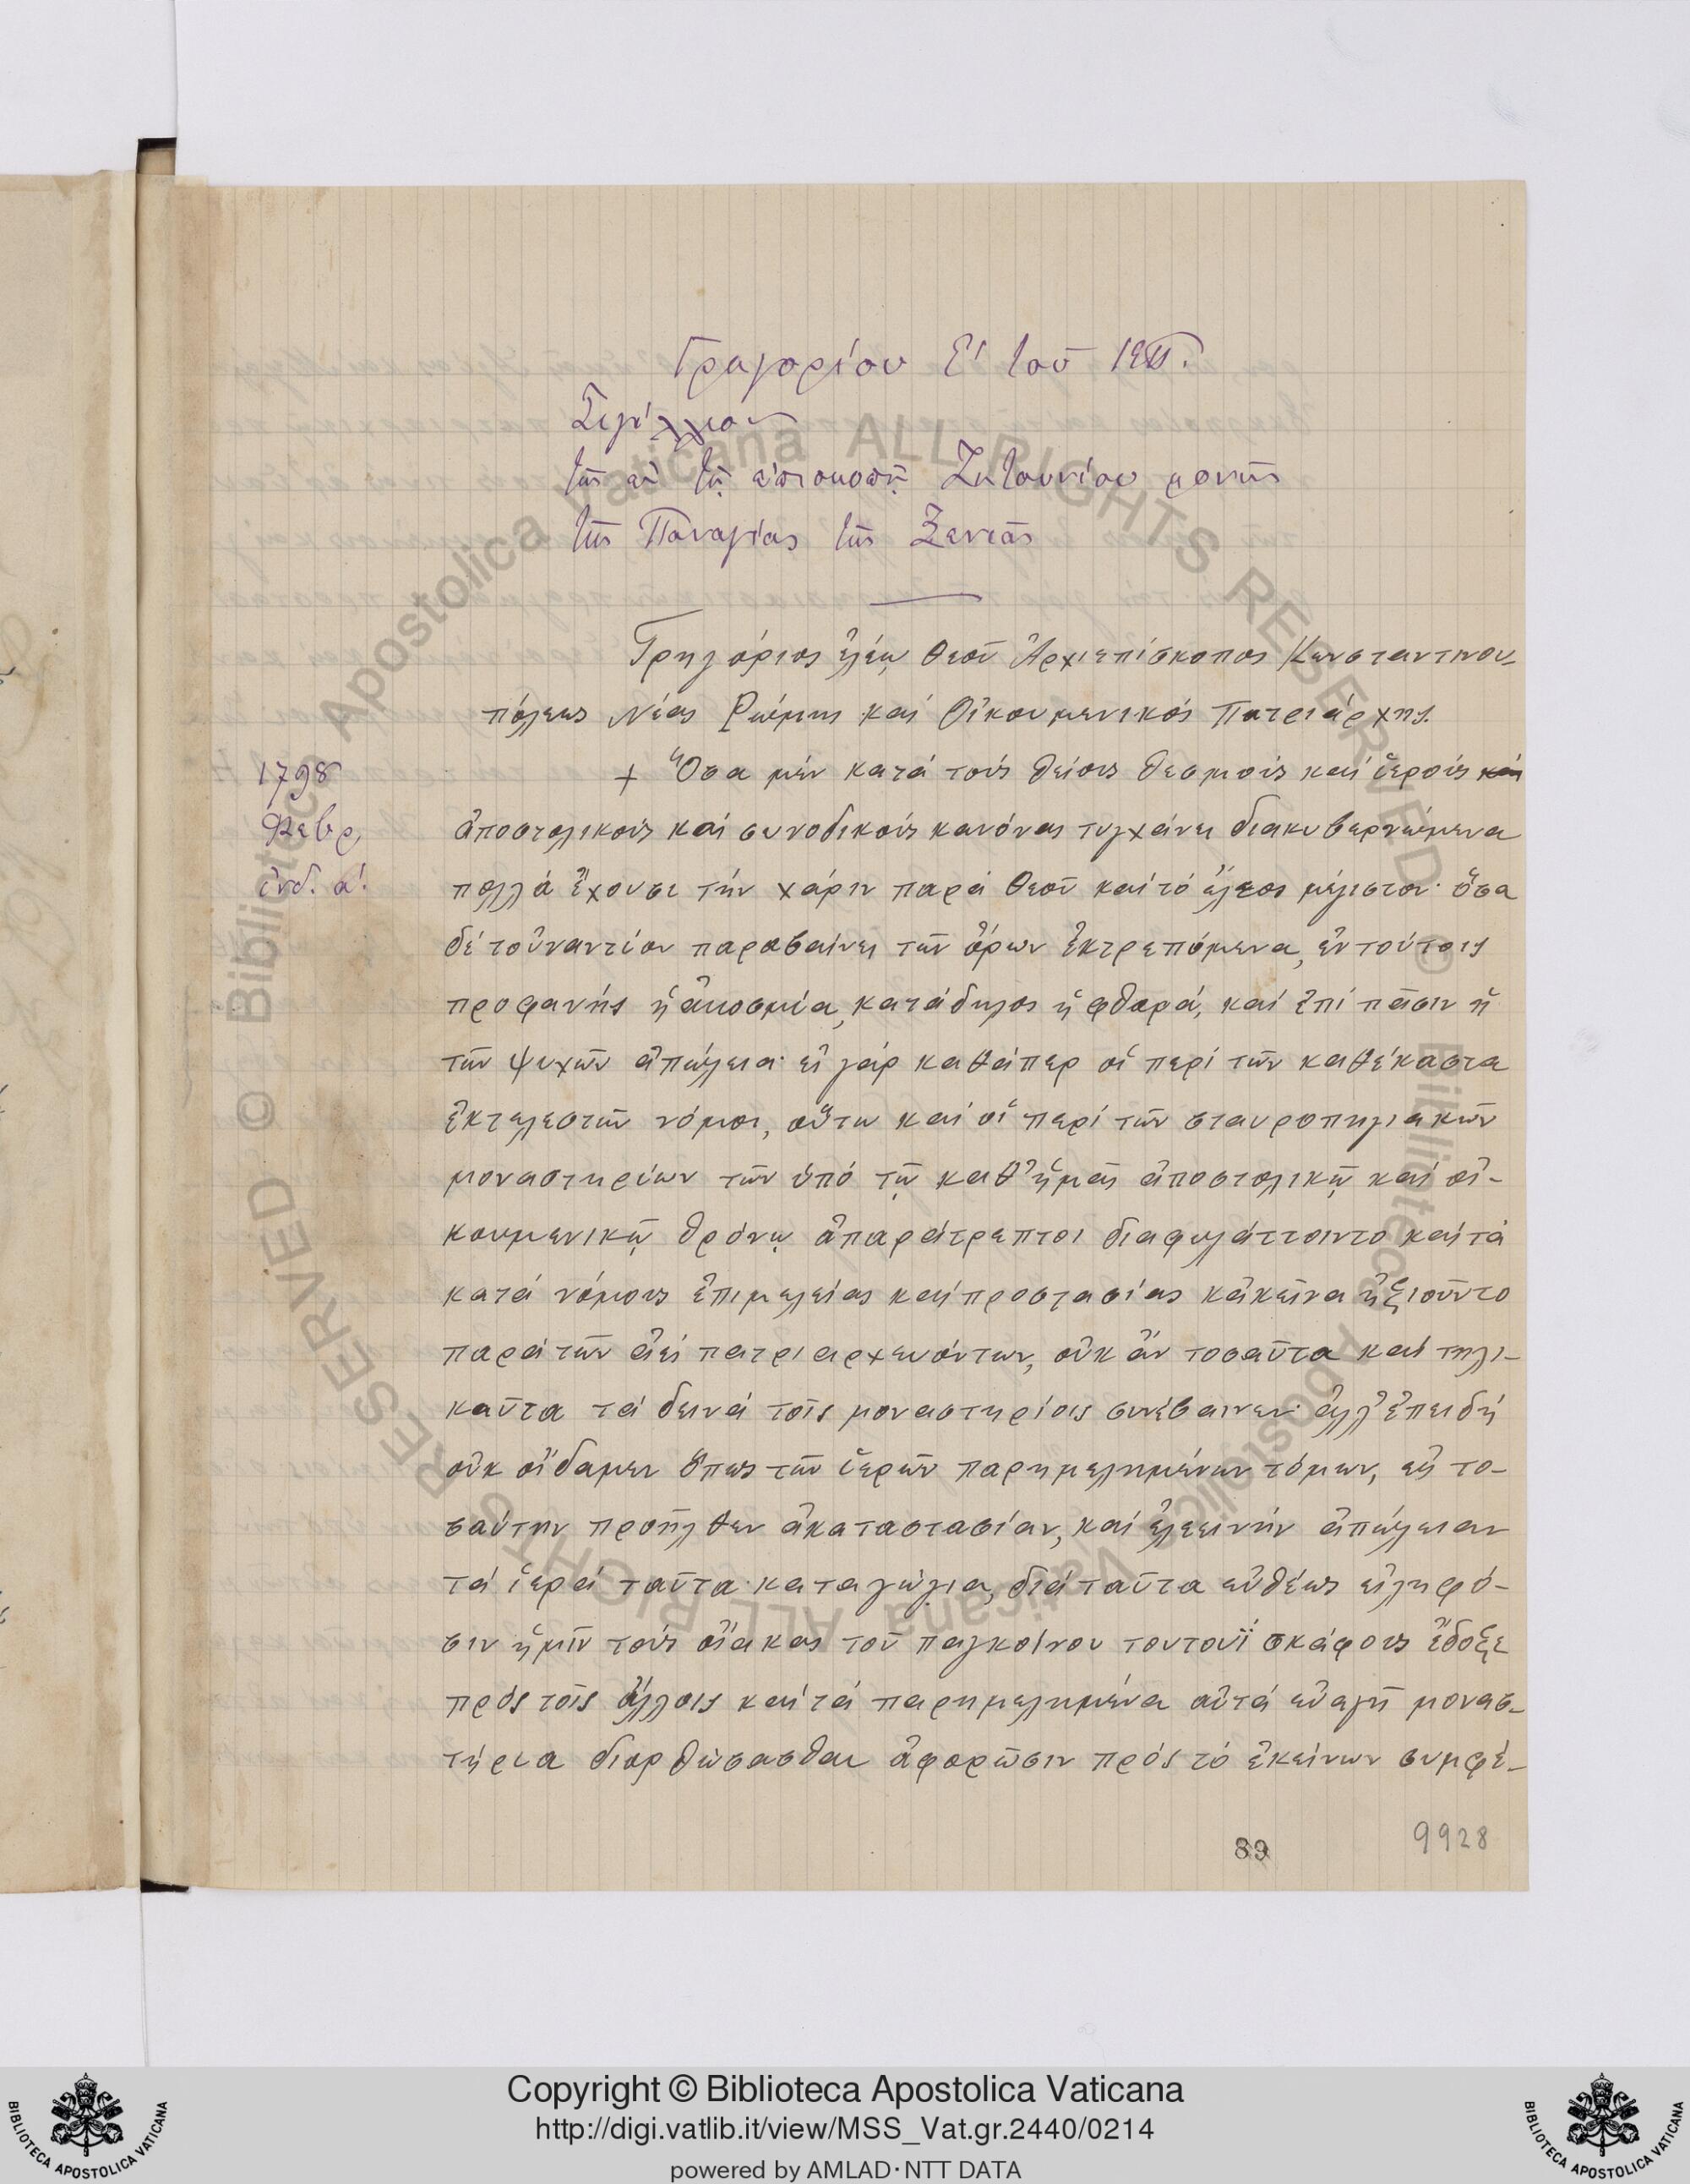 Γρηγορίου Ε' τοῦ
Σιγίλλιον
τῆς ἐν τῇ ἐπισκοπῇ Ζητουνίου μονῆς
τῆς Παναγίας τῆς Ξενιᾶς
Γρηγόριος ἐλέῳ Θεοῦ Ἀρχιεπίσκοπος Κωνσταντινου-
πόλεως Νέας Ῥώμης καί Οἰκουμενικός Πατριάρχης.
1798
Φεβρ.
ἰνδ. α'.
+ Ὅσα μέν κατά τούς θείους θεσμούς καί ἱερούς καί
ἀποστολικούς καί συνοδικούς κανόνας τυγχάνει διακυβερνώμενα
πολλά ἔχουσι τήν χάριν παρά Θεοῦ καί τό ἔλεος μέγιστον· ὅσα
δέ τοὐναντίον παραβαίνει τῶν ὅρων ἐκτρεπόμενα, ἐν τούτοις
προφανής ἡ ἀκοσμία, κατάδηλος ἡ φθορά, καί ἐπί πᾶσιν ἡ
τῶν ψυχῶν ἀπώλεια· εἰ γάρ καθάπερ οἱ περί τῶν καθέκαστα
ἐκτελεστῶν νόμοι, οὕτω καί οἱ περί τῶν σταυροπηγιακῶν
μοναστηρίων τῶν ὑπό τῷ καθ' ἡμᾶς ἀποστολικῷ καί οἰ-
κουμενικῷ θρόνῳ ἀπαράτρεπτοι διαφυλάττοιντο καί τά
κατά νόμους ἐπιμελείας καί προστασίας κἀκεῖνα ἠξιοῦντο
παρά τῶν ἀεί πατριαρχευόντων, οὐκ ἄν τοσαῦτα καί τηλι-
καῦτα τά δεινά τοῖς μοναστηρίοις συνέβαινεν· ἀλλ' ἐπειδή
οὐκ οἴδαμεν ὅπως τῶν ἱερῶν παρημελημένων τόμων, εἰς το-
σαύτην προῆλθεν ἀκαταστασίαν, καί ἐλεεινήν ἀπώλειαν
τά ἱερά ταῦτα καταγώγια, διά ταῦτα εὐθέως εἰληφό-
σιν ἡμῖν τούς οἴακας τοῦ παγκοίνου τουτουΐ σκάφους ἔδοξε
πρός τοῖς ἄλλοις καί τά παρημελημένα αὐτά εὐαγῆ μονασ-
τήρια διορθώσασθαι ἀφορῶσιν πρός τό ἐκείνων συμφέ-
89
9928
© Biblioteca Apostolica Vaticana ALL RIGHTS RESERVED
© Biblioteca Apostolica Vaticana ALL RIGHTS RESERVED
Copyright © Biblioteca Apostolica Vaticana
http://digi.vatlib.it/view/MSS_Vat.gr.2440/0214
powered by AMLAD·NTT DATA
BIBLIOTECA APOSTOLICA VATICANA
BIBLIOTECA APOSTOLICA VATICANA